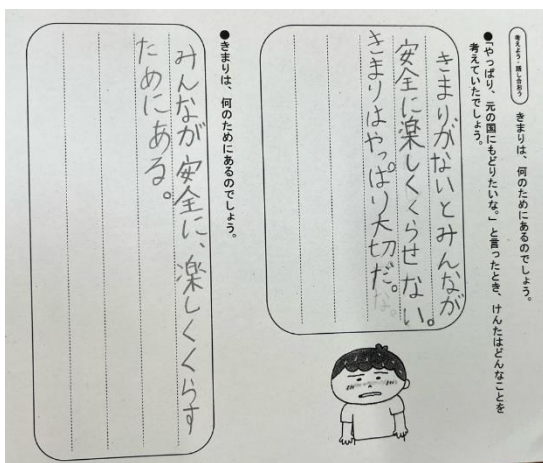 考えよう・話し合おう
きまりは、何のためにあるのでしょう。
●「やっぱり、元の国にもどりたいな。」と言ったとき、けんたはどんなことを
考えていたでしょう。
きまりがないとみんなが
安全に楽しくくらせない。
きまりはやっぱり大切だ。な。
●きまりは、何のためにあるのでしょう。
みんなが安全に、楽しくくらす
ためにある。